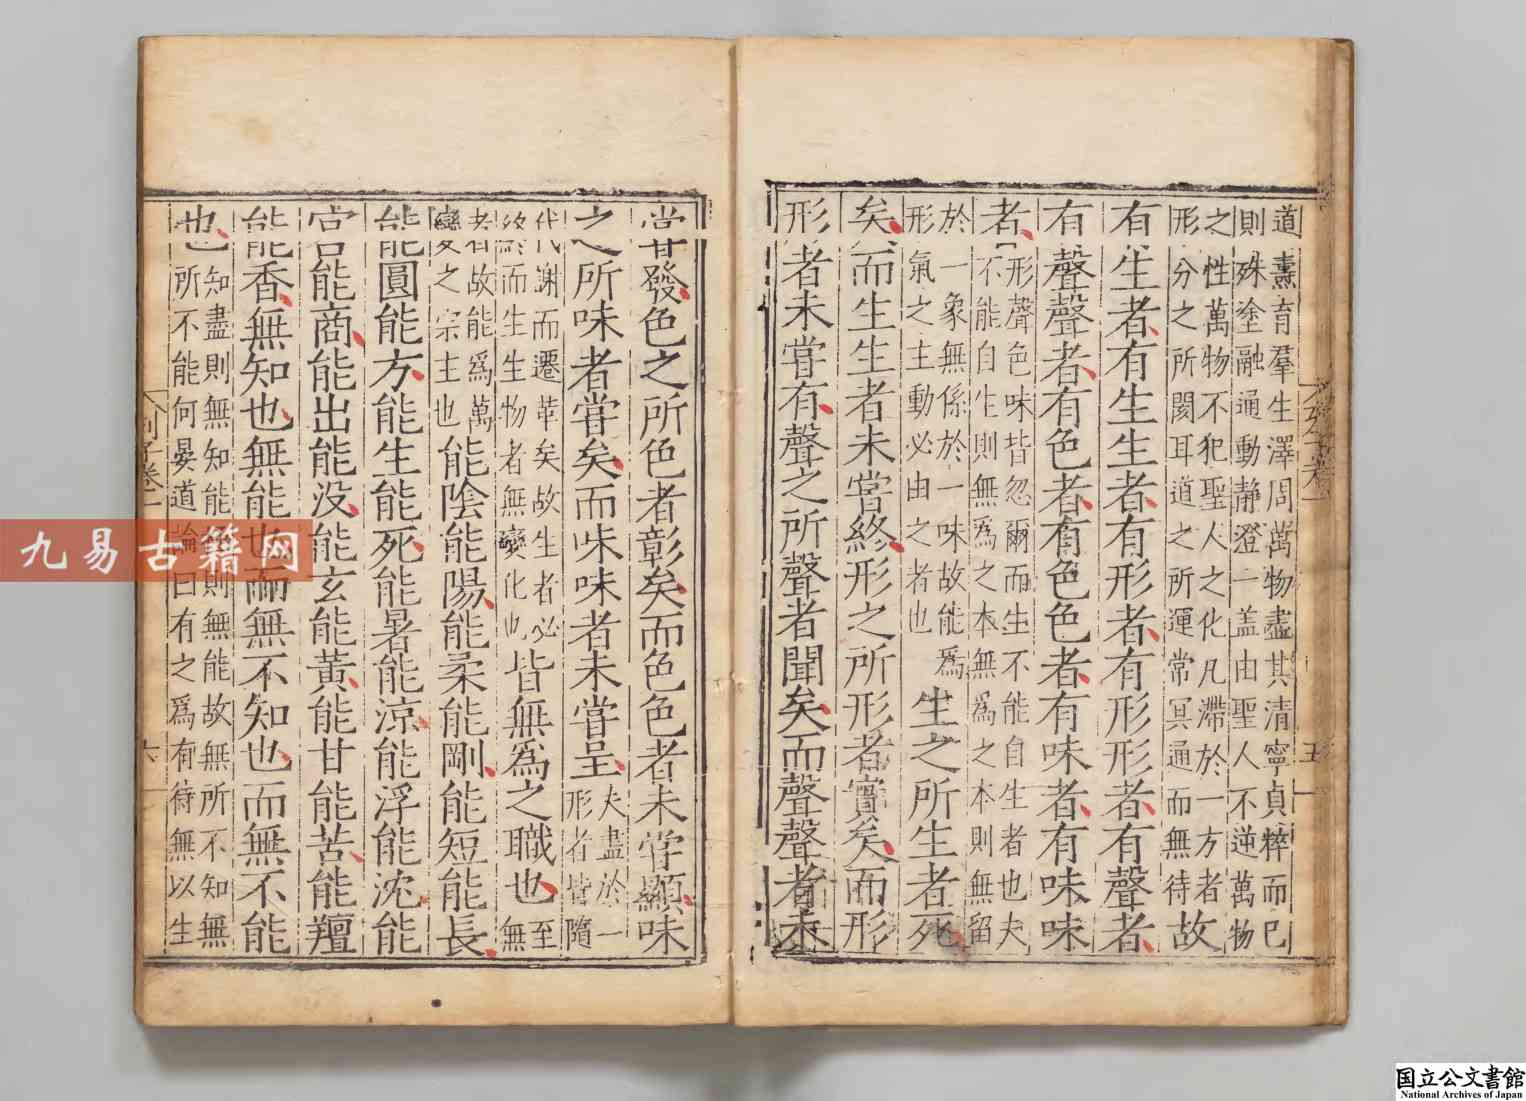 道熏育羣生澤周萬物盡其清寧貞粹而已
則殊塗融通動靜澄一蓋由聖人不逆萬物
之性萬物不犯聖人之化凡滯於一方者
形分之所閡耳道之所運常冥通而無待
故
有生者有生生者有形者有形形者有聲者
有聲聲者有色者有色色者有味者有味味
者
形聲色味皆忽爾而生不能自生者也夫
不能自生則無爲之本無爲之本則無留
於一象無係於一味故能爲
形氣之主動必由之者也
生之所生者死
矣而生生者未嘗終形之所形者實矣而形
形者未嘗有聲之所聲者聞矣而聲聲者未
五
嘗發色之所色者彰矣而色色者未嘗顯味
之所味者嘗矣而味味者未嘗呈
夫盡於一
形者皆隨
代謝而遷革矣故生者必
終而生生物者無變化也
皆無爲之職也
至
無
者故能爲萬
變之宗主也
能陰能陽能柔能剛能短能長
能圓能方能生能死能暑能涼能浮能沈能
宮能商能出能没能玄能黃能甘能苦能羶
能香無知也無能也而無不知也而無不能
也
知盡則無知能極則無能故無所不知無
所不能何晏道論曰有之爲有待無以生
列子卷一
六
九易古籍网
国立公文書館
National Archives of Japan